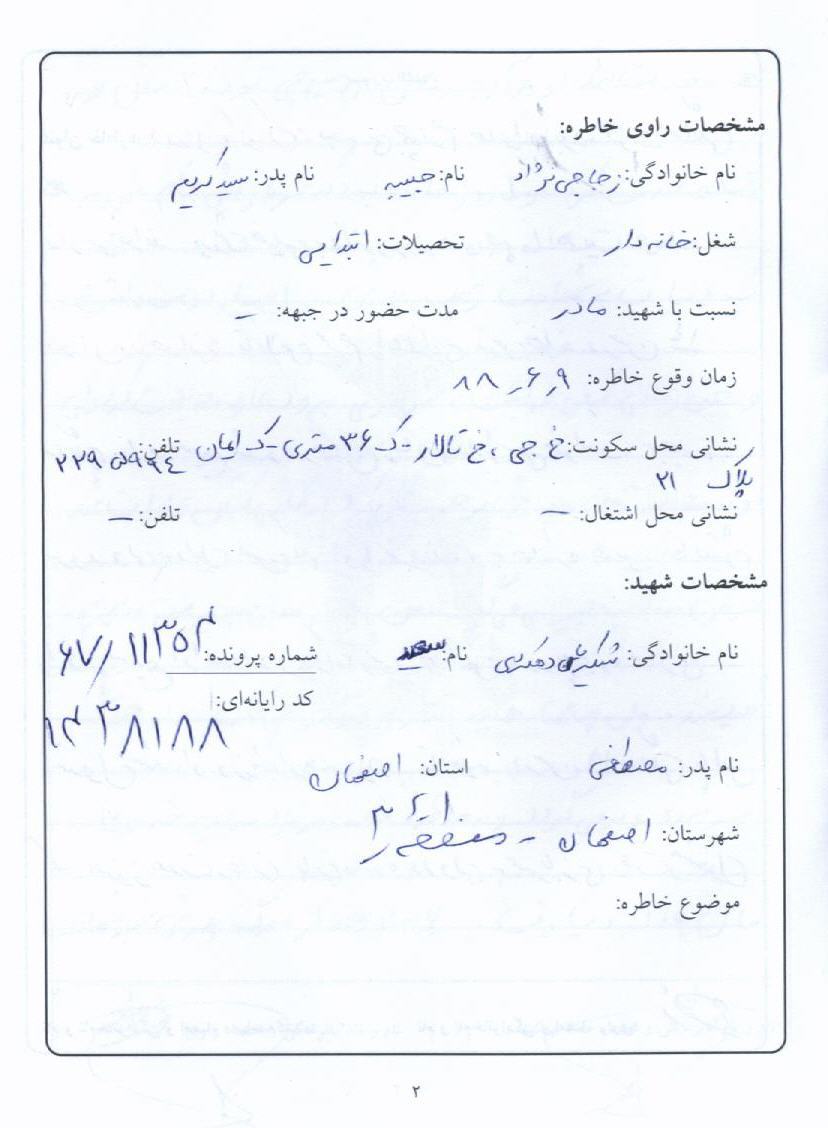 مشخصات راوی خاطره:
نام خانوادگی: زجاجی نژاد نام: حبیبه نام پدر: سید کریم
شغل: خانه دار تحصیلات: ابتدایی
نسبت با شهید: مادر مدت حضور در جبهه: –
زمان وقوع خاطره: ۸۸-۶-۹
نشانی محل سکونت: خ جی ، خ تالار - ک ۳۶ متری - ک ایمان تلفن: ۲۲۹۵۹۹۴
پلاک ۲۱
نشانی محل اشتغال: — تلفن: —
مشخصات شهید:
نام خانوادگی: دهکردی نام: سعید شماره پرونده: ۶۷/۱۱۳۵۳
کد رایانه‌ای:
۱۴۳۸۱۸۸
نام پدر: مصطفی استان: اصفهان
شهرستان: اصفهان - منطقه ۳
موضوع خاطره:
۲